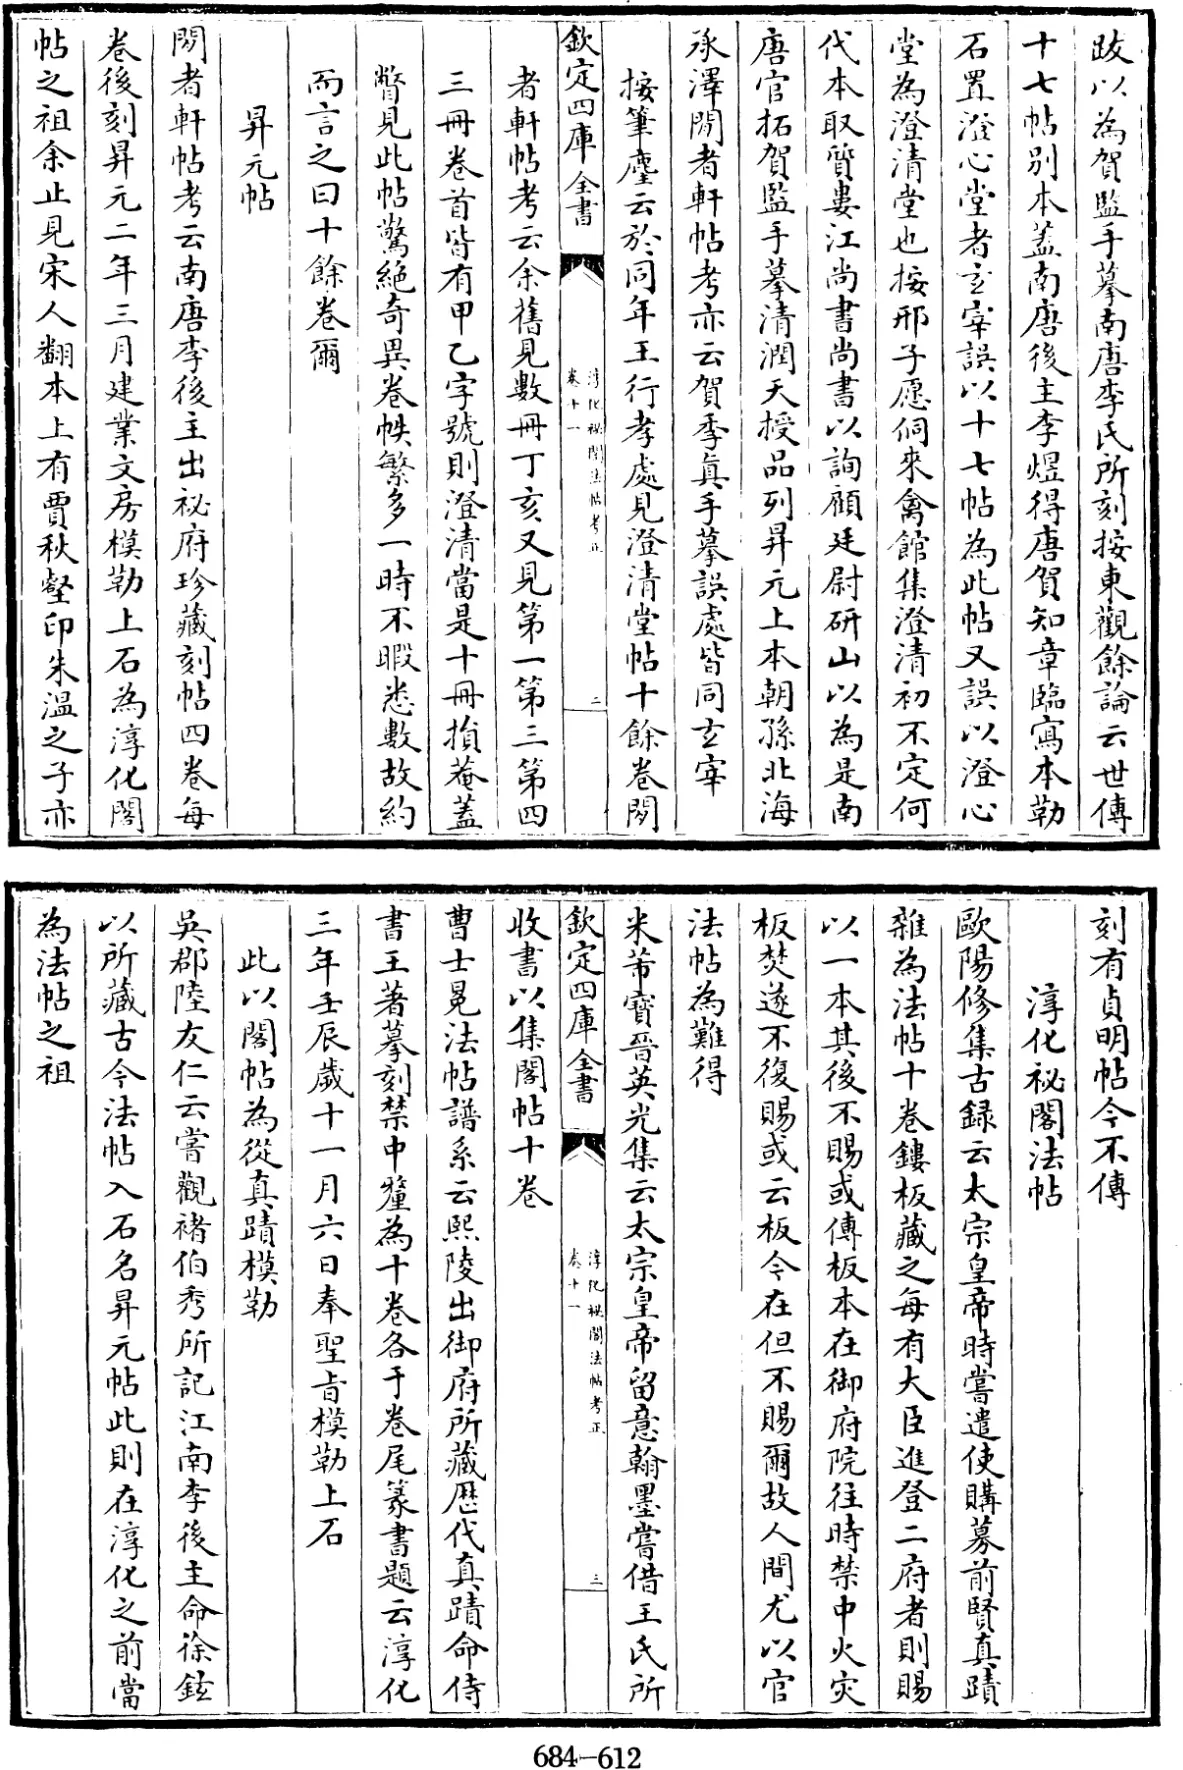 跋以為賀監手摹南唐李氏所刻按東觀餘論云世傳
十七帖别本蓋南唐後主李煜得唐賀知章臨寫本勒
石置澄心堂者玄宰誤以十七帖為此帖又誤以澄心
堂為澄清堂也按邢子愿侗來禽館集澄清初不定何
代本取質婁江尚書尚書以詢顧廷尉研山以為是南
唐官拓賀監手摹清潤天授品列昇元上本朝孫北海
承澤閒者軒帖考亦云賀季真手摹誤處皆同玄宰
按筆麈云於同年王行孝處見澄清堂帖十餘卷閒
欽定四庫全書
淳化祕閣法帖考正
卷十一
二
者軒帖考云余舊見數冊丁亥又見第一第三第四
三冊卷首皆有甲乙字號則澄清當是十冊損菴蓋
瞥見此帖驚絶奇異卷帙繁多一時不暇悉數故約
而言之曰十餘卷爾
昇元帖
閒者軒帖考云南唐李後主出祕府珍藏刻帖四卷每
卷後刻昇元二年三月建業文房模勒上石為淳化閣
帖之祖余止見宋人翻本上有賈秋壑印朱溫之子亦
刻有貞明帖今不傳
淳化祕閣法帖
歐陽修集古録云太宗皇帝時嘗遣使購募前賢真蹟
雜為法帖十卷鏤板藏之每有大臣進登二府者則賜
以一本其後不賜或傳板本在御府院往時禁中火灾
板焚遂不復賜或云板今在但不賜爾故人間尤以官
法帖為難得
米芾寶晉英光集云太宗皇帝留意翰墨嘗借王氏所
欽定四庫全書
淳化祕閣法帖考正
卷十一
三
收書以集閣帖十卷
曹士冕法帖譜系云熙陵出御府所藏歷代真蹟命侍
書王著摹刻禁中釐為十卷各于卷尾篆書題云淳化
三年壬辰歲十一月六日奉聖旨模勒上石
此以閣帖為從真蹟模勒
吳郡陸友仁云嘗觀褚伯秀所記江南李後主命徐鉉
以所藏古今法帖入石名昇元帖此則在淳化之前當
為法帖之祖
684-612